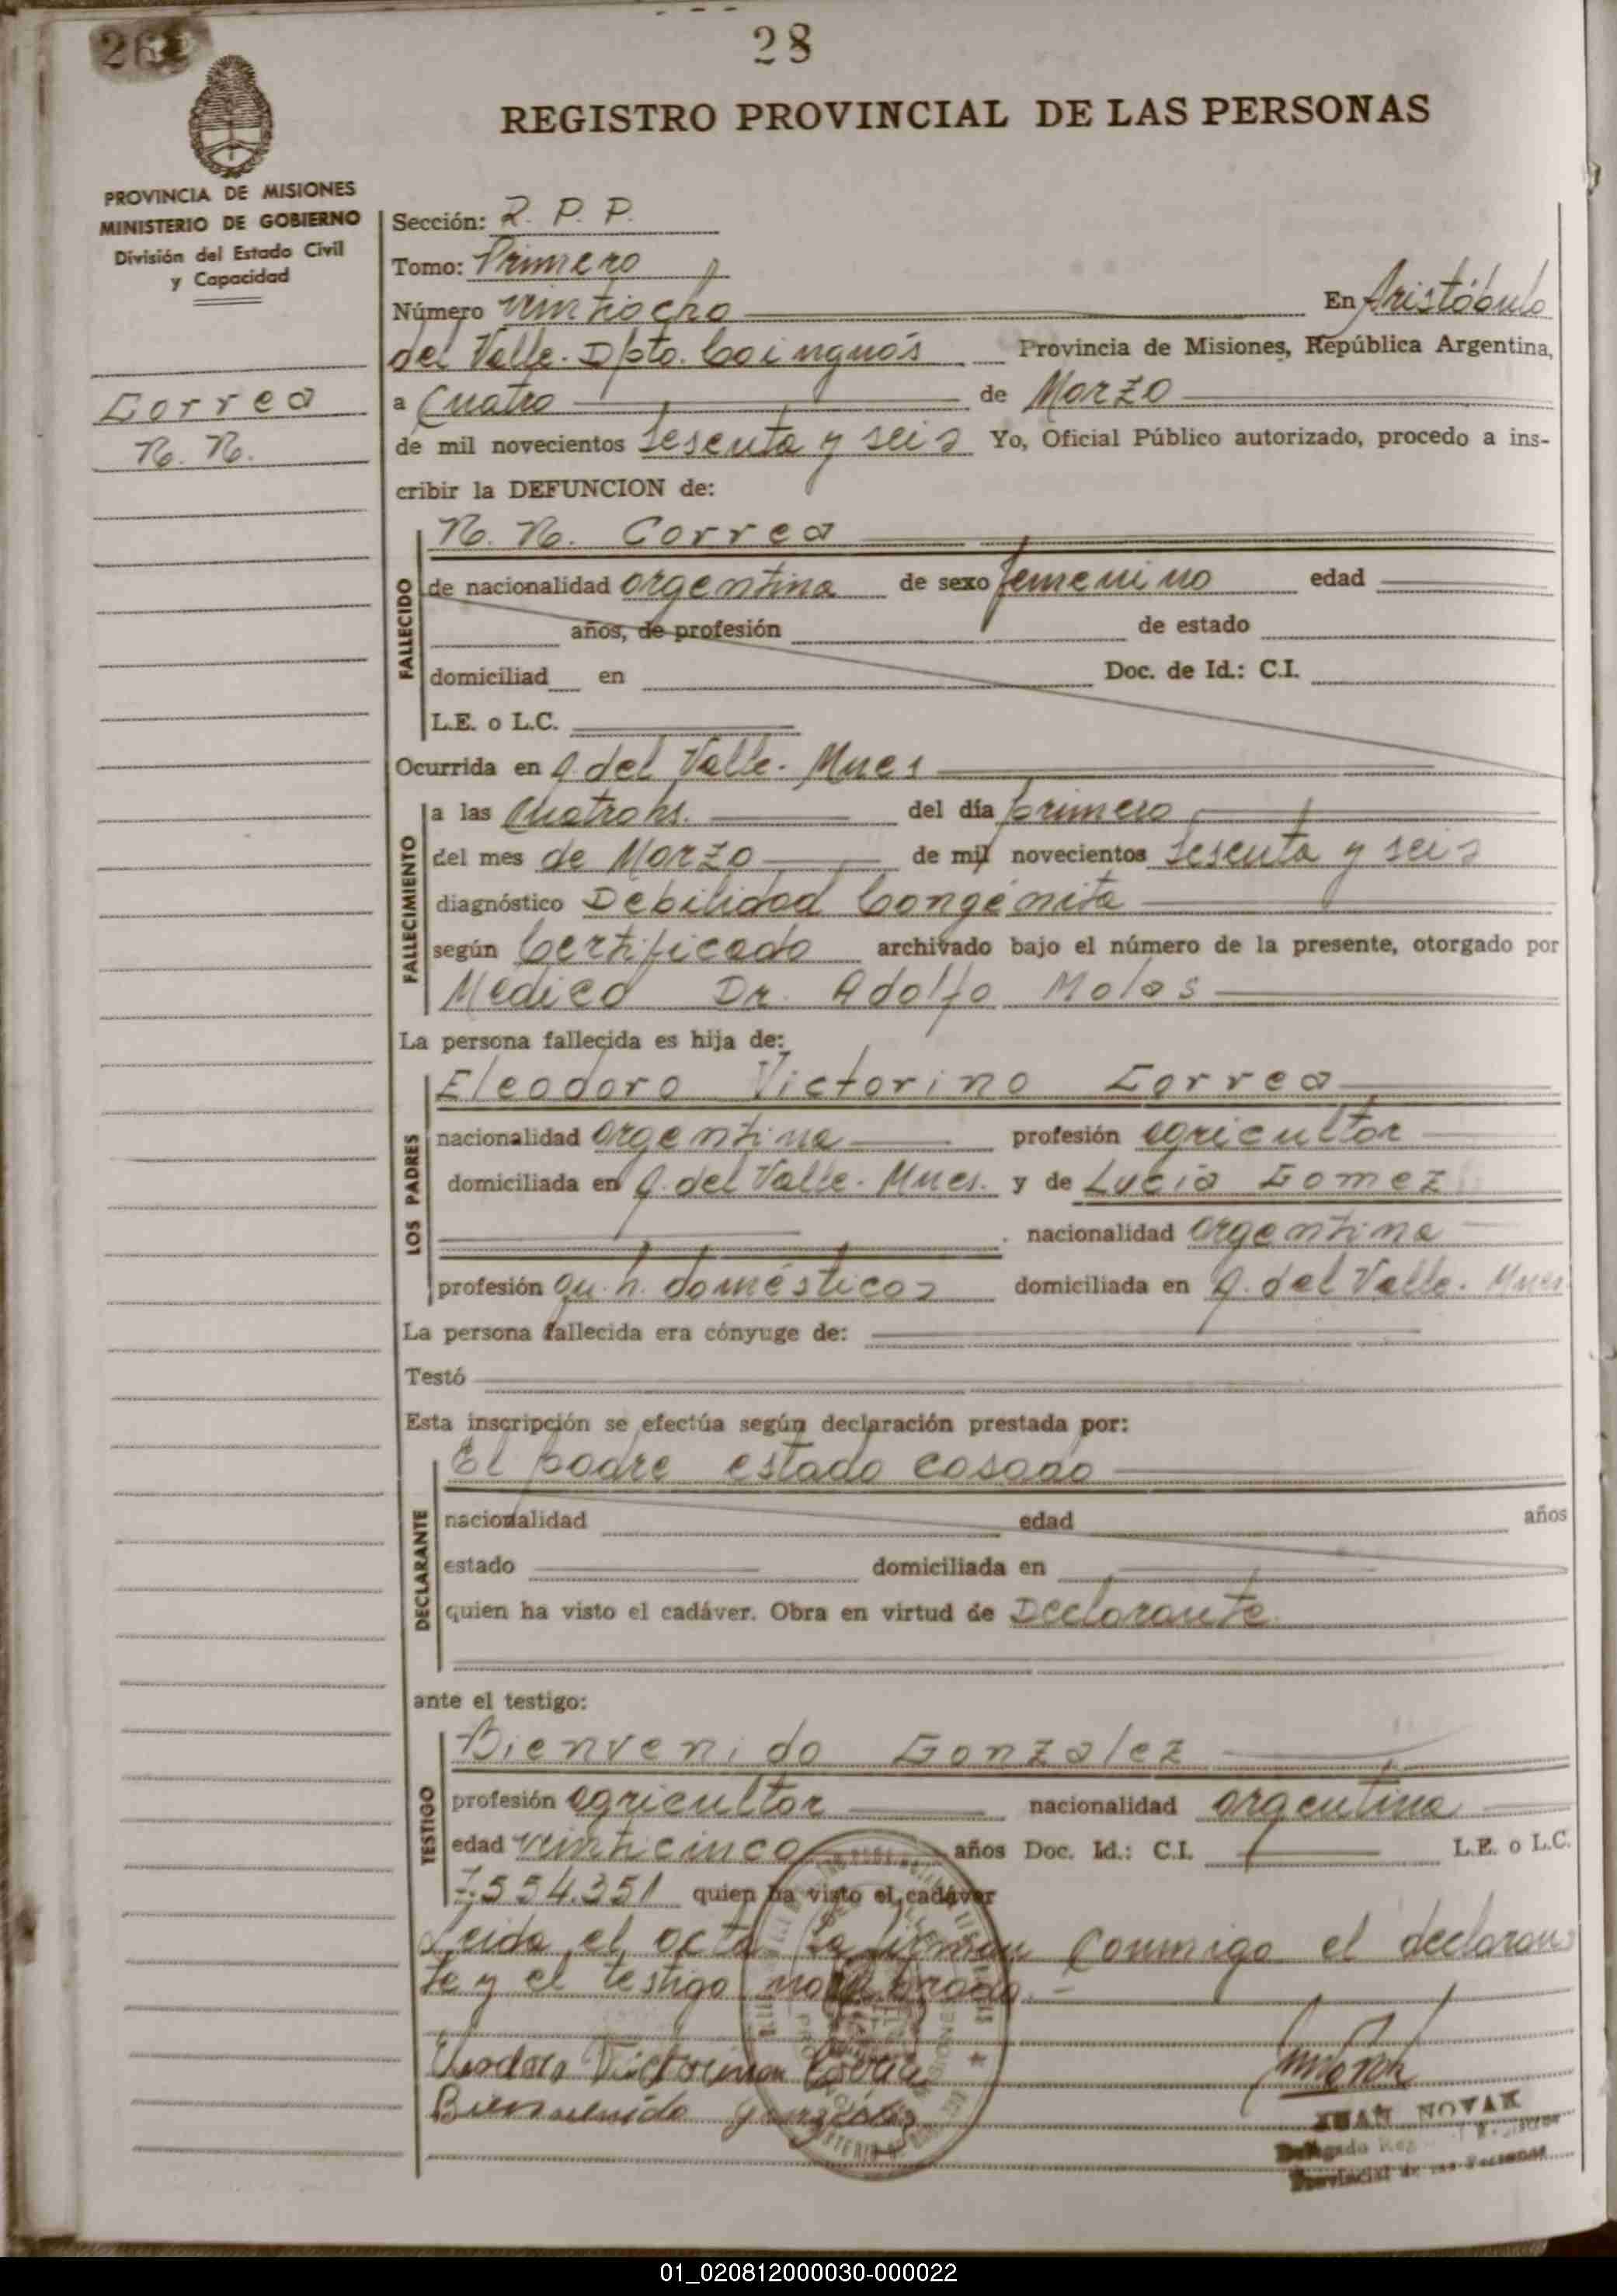 28
REGISTRO PROVINCIAL DE LAS PERSONAS
PROVINCIA DE MISIONES
MINISTERIO DE GOBIERNO
División del Estado Civil
y Capacidad
Correa
N. N.
Sección: R. P. P.
Tomo: Primero
Número veintiocho En Aristóbulo
del Valle. Dpto. Cainguás Provincia de Misiones, República Argentina,
a Cuatro de Marzo
de mil novecientos sesenta y seis Yo, Oficial Público autorizado, procedo a ins-
cribir la DEFUNCION de:
FALLECIDO
N. N. Correa
de nacionalidad argentina de sexo femenino edad
años, de profesión de estado
domiciliad en Doc. de Id.: C.I.
L.E. o L.C.
Ocurrida en A. del Valle. Mnes
FALLECIMIENTO
a las Cuatro hs. del día primero
del mes de Marzo de mil novecientos sesenta y seis
diagnóstico Debilidad Congénita
según Certificado archivado bajo el número de la presente, otorgado por
Medico Dr. Adolfo Molas
La persona fallecida es hija de:
LOS PADRES
Eleodoro Victorino Correa
nacionalidad argentina profesión agricultor
domiciliada en A. del Valle. Mnes. y de Lucía Gomez
nacionalidad argentina
profesión qu. h. domésticos domiciliada en A. del Valle. Mnes
La persona fallecida era cónyuge de:
Testó
Esta inscripción se efectúa según declaración prestada por:
DECLARANTE
El padre estado casado
nacionalidad edad años
estado domiciliada en
quien ha visto el cadáver. Obra en virtud de Declarante
ante el testigo:
TESTIGO
Bienvenido Gonzalez
profesión agricultor nacionalidad argentina
edad veinticinco años Doc. Id.: C.I. L.E. o L.C.
7.554.351 quien ha visto el cadáver
Leida el acta la firman conmigo el declaran
te y el testigo nombrado.-
Victorino Correa
Bienvenido Gonzalez
JUAN NOVAK
Delegado
Provincial de las Personas
01_020812000030-000022